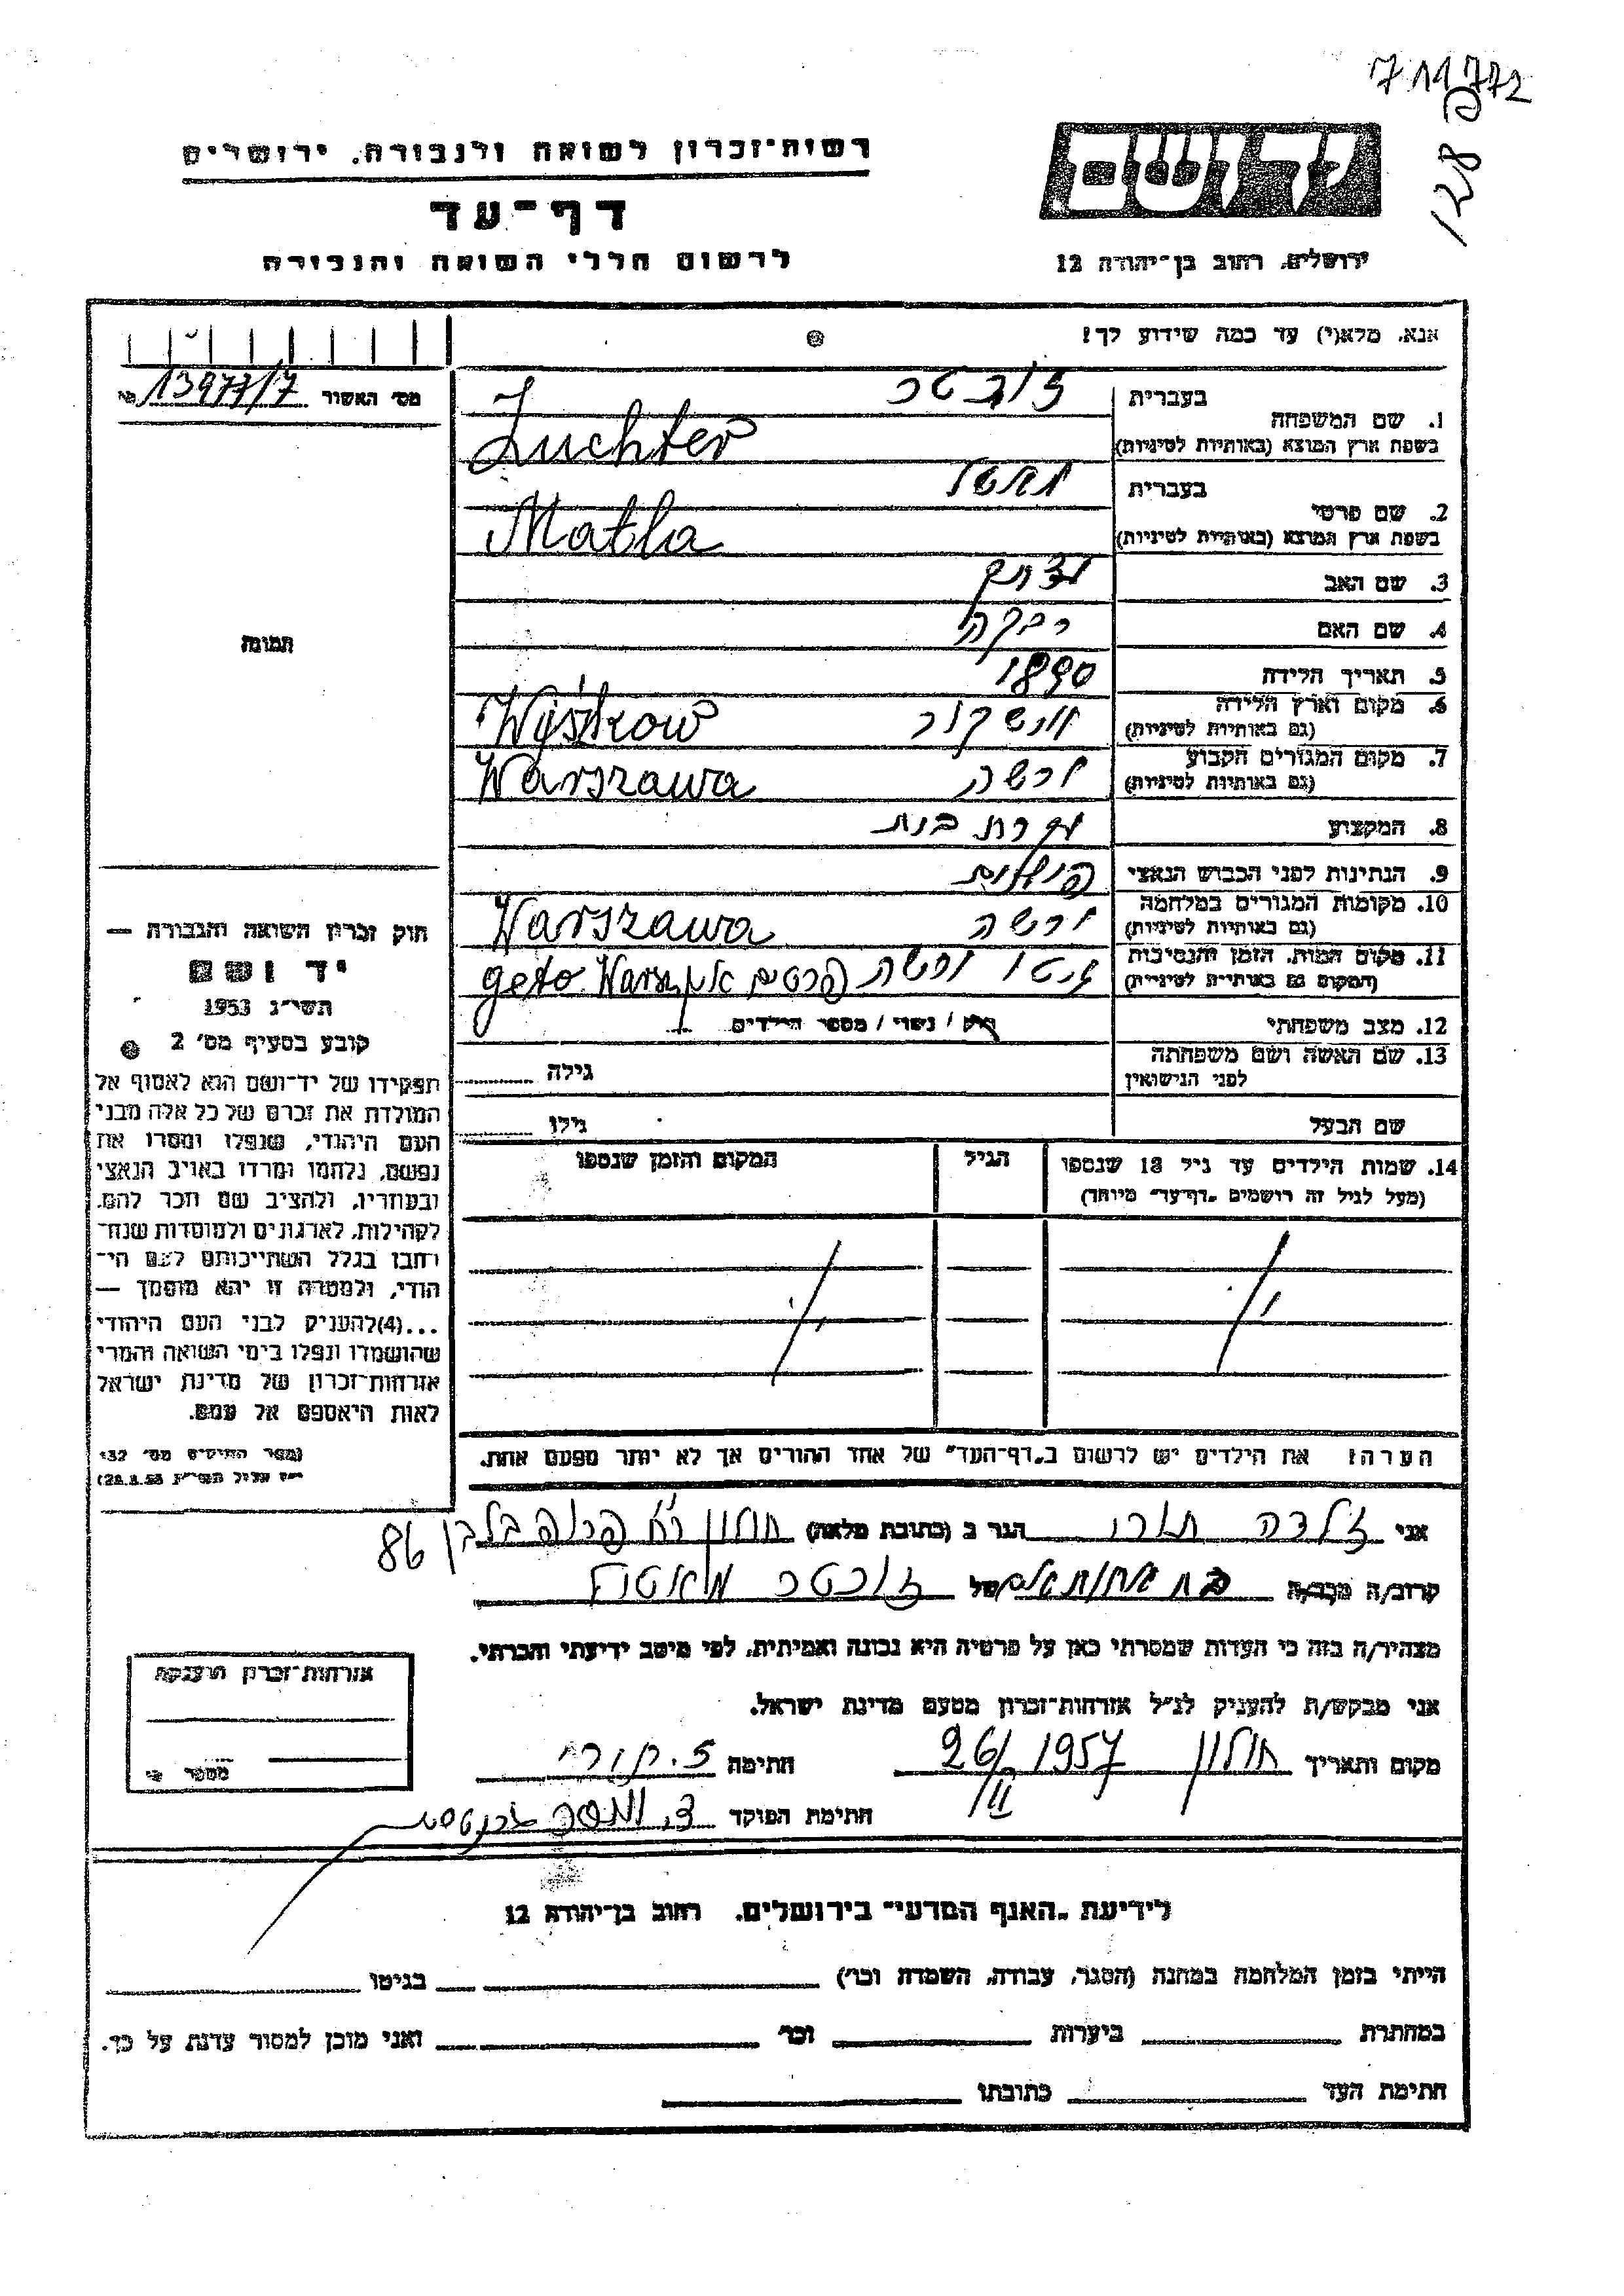 711772
128 ק
יד ושם
ירושלים, רחוב בן־יהודה 12
רשות־זכרון לשואה ולגבורה, ירושלים
דף־עד
לרשום חללי השואה והגבורה
אנא, מלא(י) עד כמה שידוע לך!
מס׳ האשור 13977/7
1. שם המשפחה
בעברית זוכטר
בשפת ארץ המוצא (באותיות לטיניות) Zuchter
2. שם פרטי
בעברית
בשפת ארץ המוצא (באותיות לטיניות) Matla
3. שם האב
4. שם האם רבקה
5. תאריך הלידה 1890
6. מקום וארץ הלידה
(גם באותיות לטיניות) Wyszków
7. מקום המגורים הקבוע ורשה
(גם באותיות לטיניות) Warszawa
8. המקצוע עקרת בית
9. הנתינות לפני הכבוש הנאצי פולנית
10. מקומות המגורים במלחמה ורשה
(גם באותיות לטיניות) Warszawa
11. מקום המות, הזמן והנסיבות גיטו ורשה הפרטים
(המקום גם באותיות לטיניות) geto Warszawa
12. מצב משפחתי רוק / נשוי / מספר הילדים
13. שם האשה ושם משפחתה
לפני הנישואין גילה
שם הבעל גילו
14. שמות הילדים עד גיל 18 שנספו הגיל המקום והזמן שנספו
(מעל לגיל זה רושמים „דף־עד״ מיוחד)
הערה: את הילדים יש לרשום ב„דף־העד״ של אחד ההורים אך לא יותר מפעם אחת.
תמונה
חוק זכרון השואה והגבורה —
יד ושם
תשי״ג 1953
קובע בסעיף מס׳ 2
תפקידו של יד־ושם הוא לאסוף אל
המולדת את זכרם של כל אלה מבני
העם היהודי, שנפלו ומסרו את
נפשם, נלחמו ומרדו באויב הנאצי
ובעוזריו, ולהציב שם וזכר להם,
לקהילות, לארגונים ולמוסדות שנח־
רחבו בגלל השתייכותם לעם הי־
הודי, ולמטרה זו יהא מוסמך —
...(4)להעניק לבני העם היהודי
שהושמדו ונפלו בימי השואה והמרי
אזרחות־זכרון של מדינת ישראל
לאות היאספם אל עמם.
(ספר החוקים מס׳ 132
אני זלדה הגר ב (כתובת מלאה) חולון רח׳ 86
קרוב/ה מכר/ה של זוכטר
מצהיר/ה בזה כי העדות שמסרתי כאן על פרטיה היא נכונה ואמיתית, לפי מיטב ידיעתי והכרתי.
אני מבקש/ת להעניק לנ״ל אזרחות־זכרון מטעם מדינת ישראל.
מקום ותאריך חולון 26/II 1957 חתימה
חתימת הפוקד
אזרחות־זכרון הוענקה
מספר
לידיעת „האגף המדעי״ בירושלים, רחוב בן־יהודה 12
הייתי בזמן המלחמה במחנה (הסגר, עבודה, השמדה וכו׳) בגיטו
במחתרת ביערות וכו׳ ואני מוכן למסור עדות על כך.
חתימת העד כתובתו